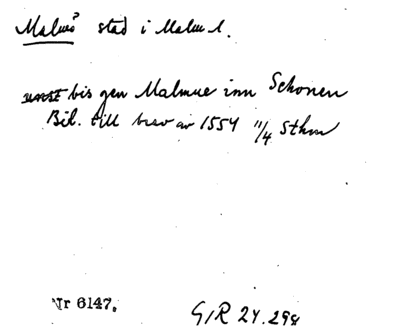 Malmö stad i Malm l.
bis gen Malmue inn Schonen
Bil. till brev av 1554 11/4 Sthm
Nr 6147.
GIR 24.298